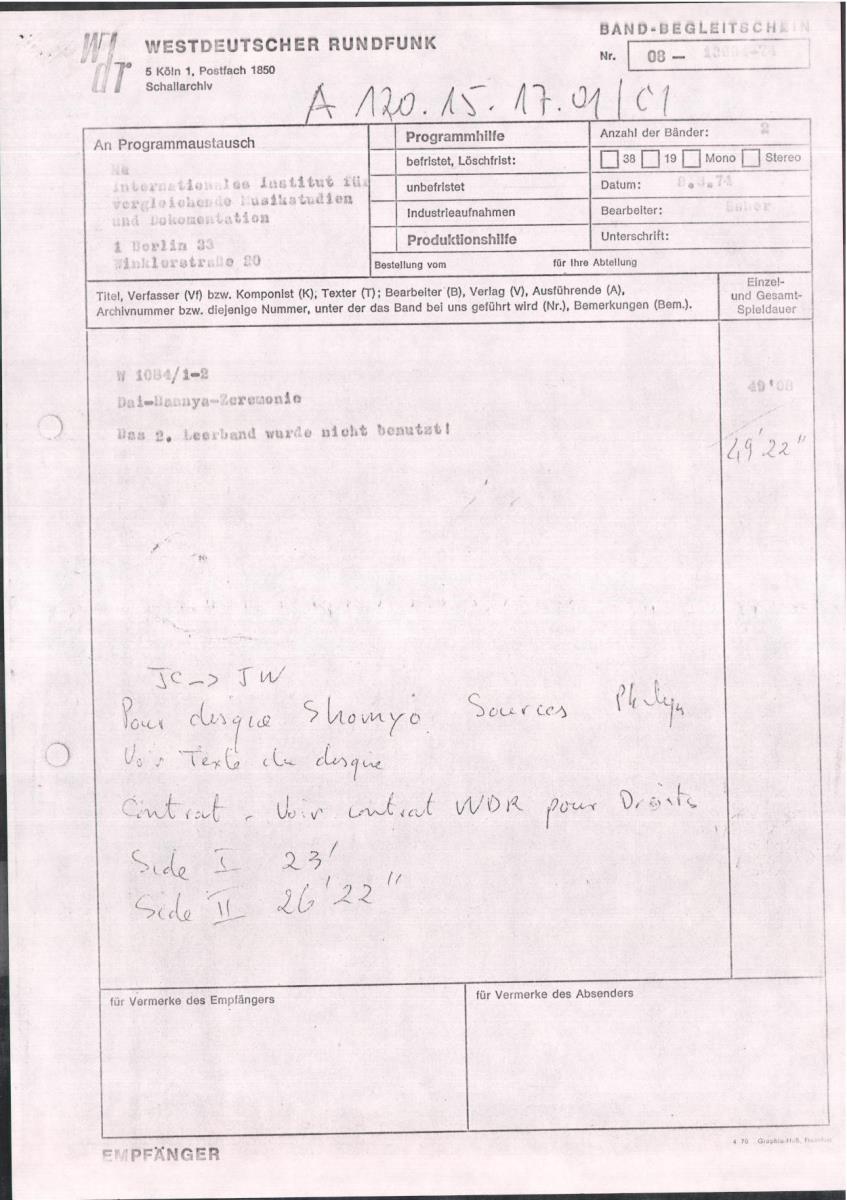 wdr
WESTDEUTSCHER RUNDFUNK
5 Köln 1, Postfach 1850
Schallarchiv
BAND-BEGLEITSCHEIN
Nr. 08 —
A 120.15.17.01/C1
An Programmaustausch
Internationales Institut für
vergleichende Musikstudien
und Dokumentation
1 Berlin 33
Winklerstraße 20
Programmhilfe
befristet, Löschfrist:
unbefristet
Industrieaufnahmen
Produktionshilfe
Bestellung vom für Ihre Abteilung
Anzahl der Bänder: 2
38 19 Mono Stereo
Datum:
Bearbeiter:
Unterschrift:
Titel, Verfasser (Vf) bzw. Komponist (K); Texter (T); Bearbeiter (B), Verlag (V), Ausführende (A),
Archivnummer bzw. diejenige Nummer, unter der das Band bei uns geführt wird (Nr.), Bemerkungen (Bem.).
Einzel-
und Gesamt-
Spieldauer
W 1084/1-2
Dai-Hannya-Zeremonie
Das 2. Leerband wurde nicht benutzt!
49'08
49'22"
JC -> JW
Pour disque Shomyo Sources
Voir Texte du disque
Contrat - Voir contrat WDR pour Droits
Side I 23'
Side II 26'22"
für Vermerke des Empfängers
für Vermerke des Absenders
EMPFÄNGER
4 70